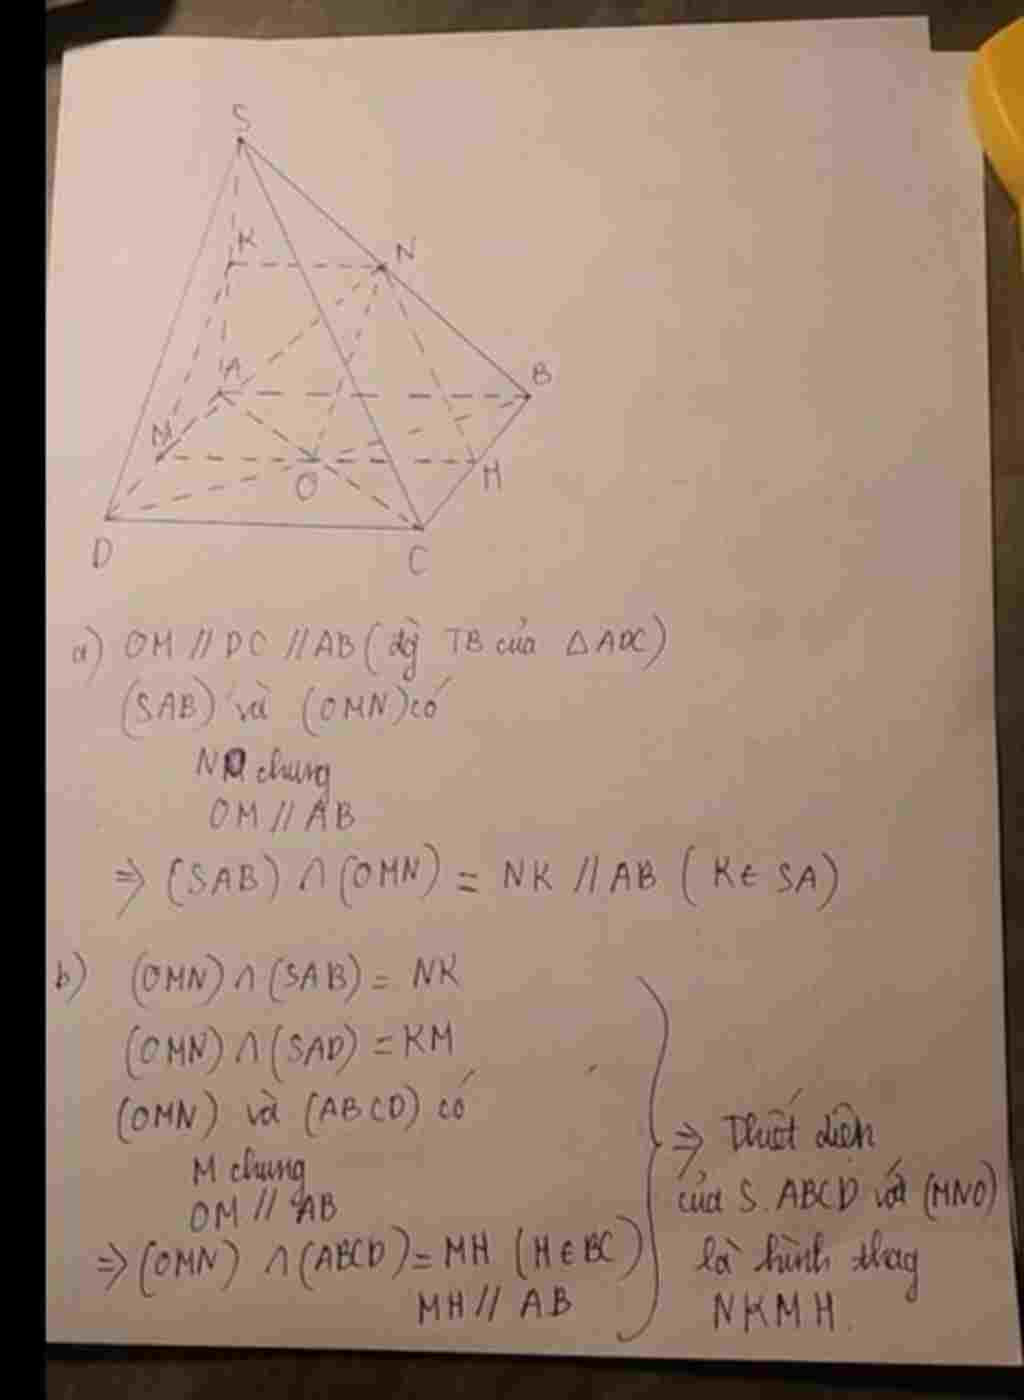 S
K
N
A
B
M
O
H
D
C
a) OM // DC // AB (đg TB của △ADC)
(SAB) và (OMN) có
N chung
OM // AB
⇒ (SAB) ∩ (OMN) = NK // AB (K ∈ SA)
b) (OMN) ∩ (SAB) = NK
(OMN) ∩ (SAD) = KM
(OMN) và (ABCD) có
M chung
OM // AB
⇒ (OMN) ∩ (ABCD) = MH (H ∈ BC)
MH // AB
⇒ Thiết diện
của S.ABCD với (MNO)
là hình thag
NKMH.